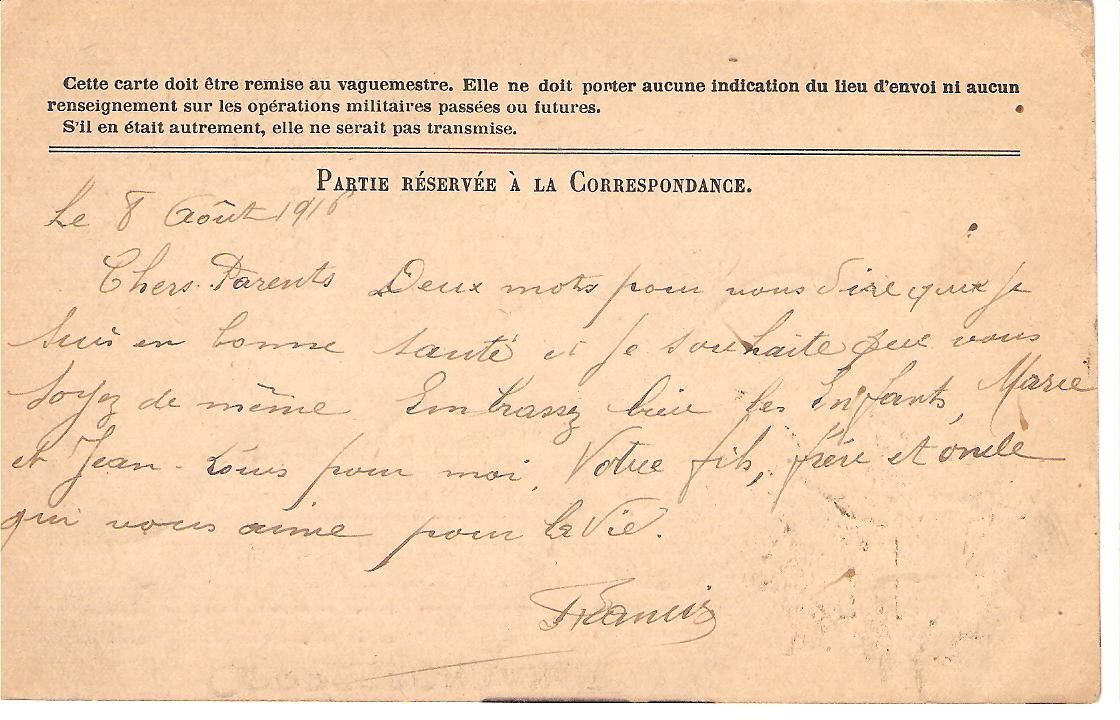 Cette carte doit être remise au vaguemestre. Elle ne doit porter aucune indication du lieu d'envoi ni aucun
renseignement sur les opérations militaires passées ou futures.
S'il en était autrement, elle ne serait pas transmise.
PARTIE RÉSERVÉE À LA CORRESPONDANCE.
Le 8 Août 1916
Chers Parents Deux mots pour vous dire que je
suis en bonne santé et je souhaite que vous
soyez de même. Embrassez bien les Enfants, Marie
et Jean-Louis pour moi. Votre fils, frère et oncle
qui vous aime pour la Vie.
Francis